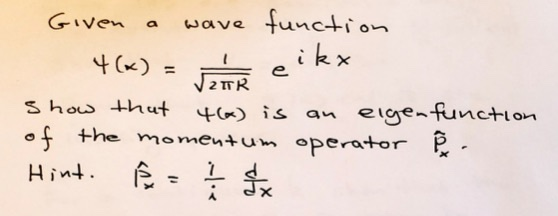 Given a wave function
ψ(x) = 1/√2πR e^ikx
Show that ψ(x) is an eigenfunction
of the momentum operator p̂ₓ.
Hint. p̂ₓ = 1/i d/dx